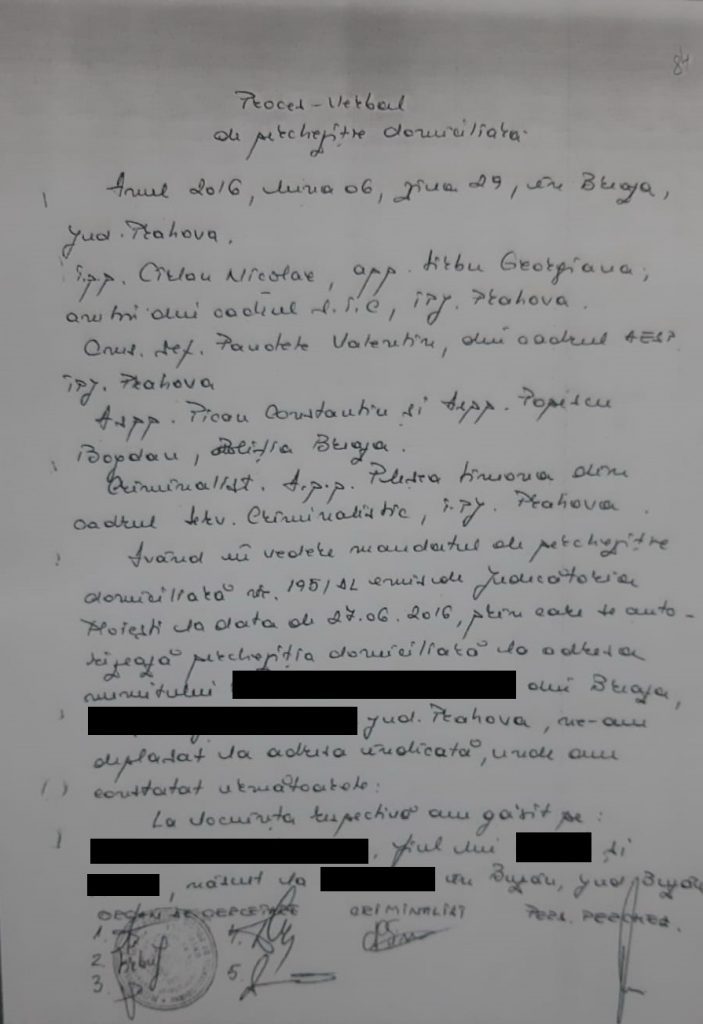 84
Proces-Verbal
de percheziție domiciliară
Anul 2016, luna 06, ziua 29, în Breaza,
jud. Prahova.
i.p.p. Nicolae, a.p.p. Sîrbu Georgiana,
ambii din cadrul S.I.C, IPJ. Prahova.
Șef. Valentin, din cadrul
IPJ. Prahova
A.s.p.p. Constantin și A.s.p.p. Popescu
Bogdan, Poliția Breaza.
Criminalist. A.p.p. Simona din
cadrul Serv. Criminalistic, I.P.J. Prahova.
Având în vedere mandatul de percheziție
domiciliară nr. 195/SL emis de Judecătoria
Ploiești la data de 27.06.2016, prin care se auto-
rizează percheziția domiciliară la adresa
numitului din Breaza,
jud. Prahova, ne-am
deplasat la adresa indicată, unde am
constatat următoarele:
La locuința respectivă am găsit pe:
, fiul lui și
, născut la în Buzău, jud. Buzău
ORGAN DE CERCETARE CRIMINALIST PERS. PERCHEZ.
1. 4.
2. Sîrbu
3. 5.